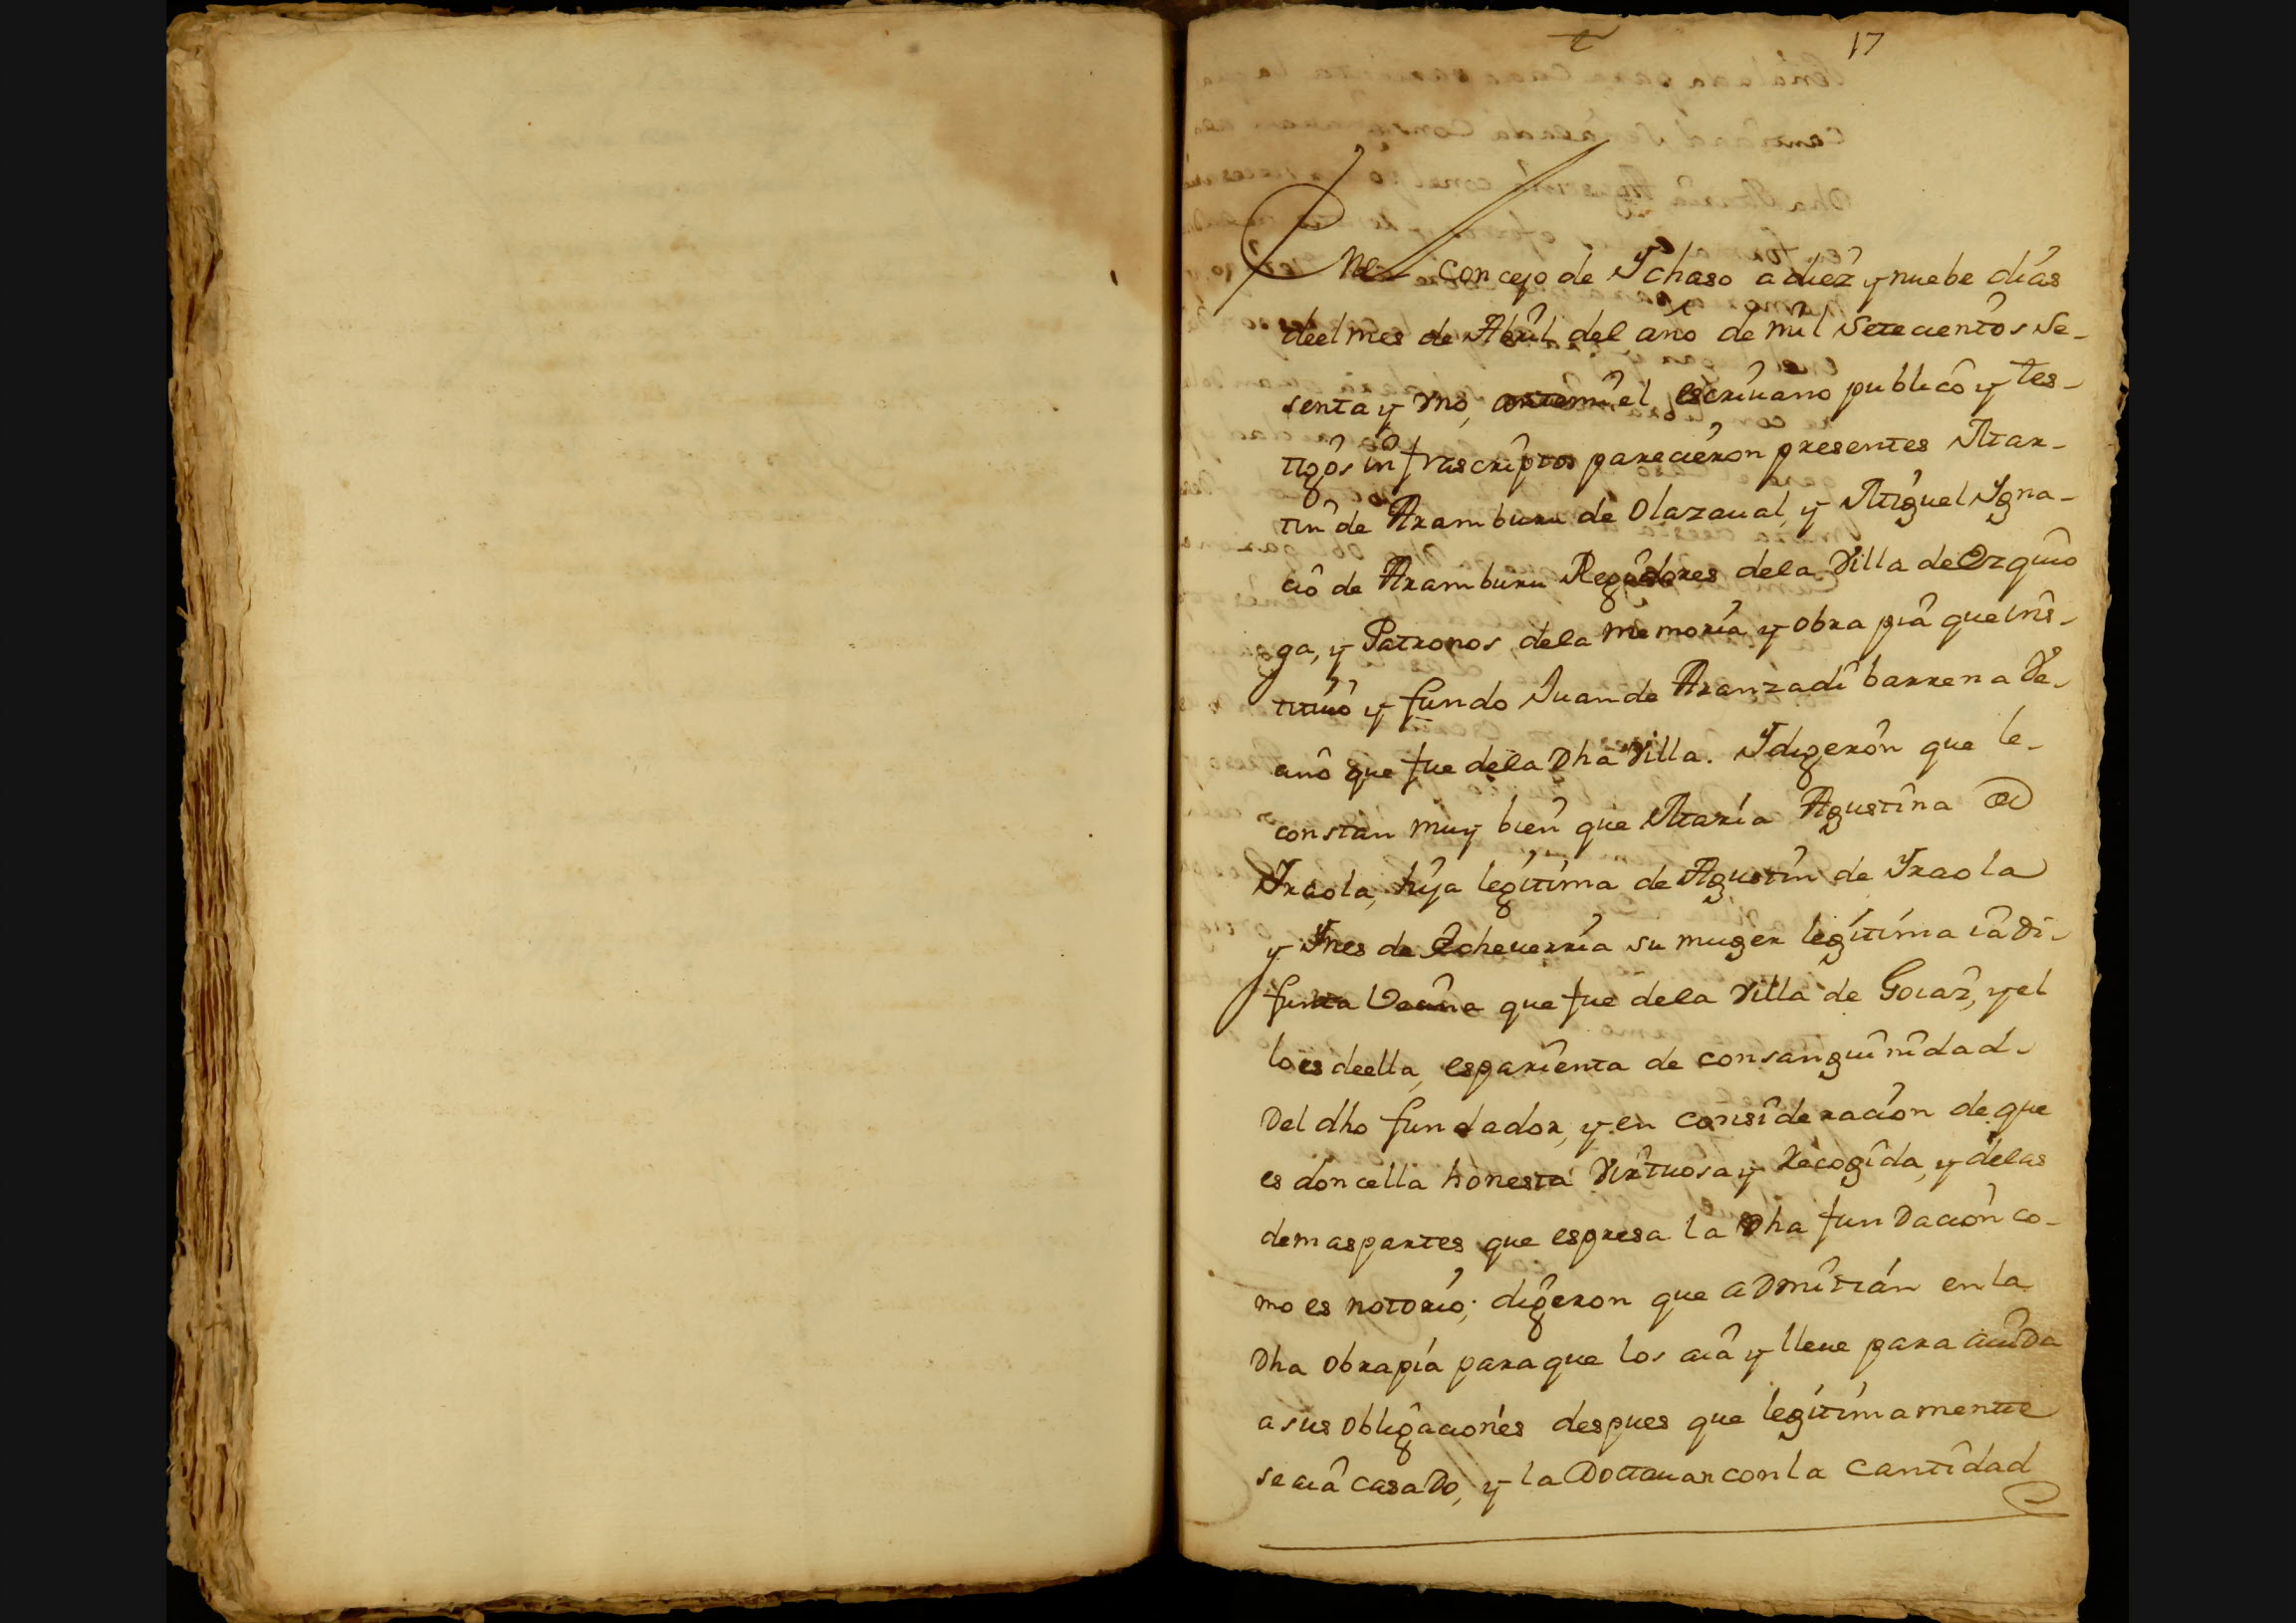 17
En el concejo de Ychaso a diez y nuebe dias
deel mes de Abril del año de mil Setecientos Se-
senta y vno, ante mi el escriuano publico y tes-
tigos infrascriptos parecieron presentes Mar-
tin de Aramburu de Olazaual, y Miguel Ygna-
cio de Aramburu Regidores dela Villa de Ezquio
ga, y Patronos dela memoria y obra pia que ins-
tituio y fundo Juan de Aranzadi barrena Ve-
cino que fue dela Dha Villa. Y digeron que le-
constan muy bien que Maria Agustina de
Yraola, hija legitima de Agustin de Yraola
y Ynes de Echeuerria su muger legitima ia di-
funta Vecina que fue dela Villa de Goiaz, y el
lo es deella, es parienta de consanguinidad
Del dho fundador, y en consideracion de que
es doncella honesta Virtuosa y Recogida, y delas
demas partes que espresa la Dha fundacion co-
mo es notorio; digeron que aDmitian en la
Dha obrapia para que los aia y lleue para aiuDa
a sus obligaciones despues que legitimamente
se aia casaDo, y la Dottauan con la cantidad